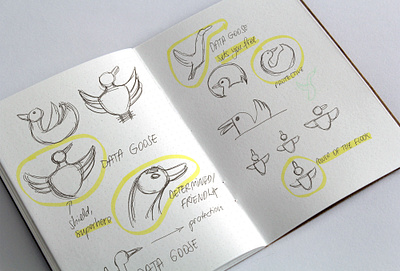 DATA GOOSE
shield,
superhero
DETERMINED/
FRIENDLY
protection
DATA GOOSE
DATA GOOSE
sets you free
PROTECTIVE
POWER OF THE FLOCK